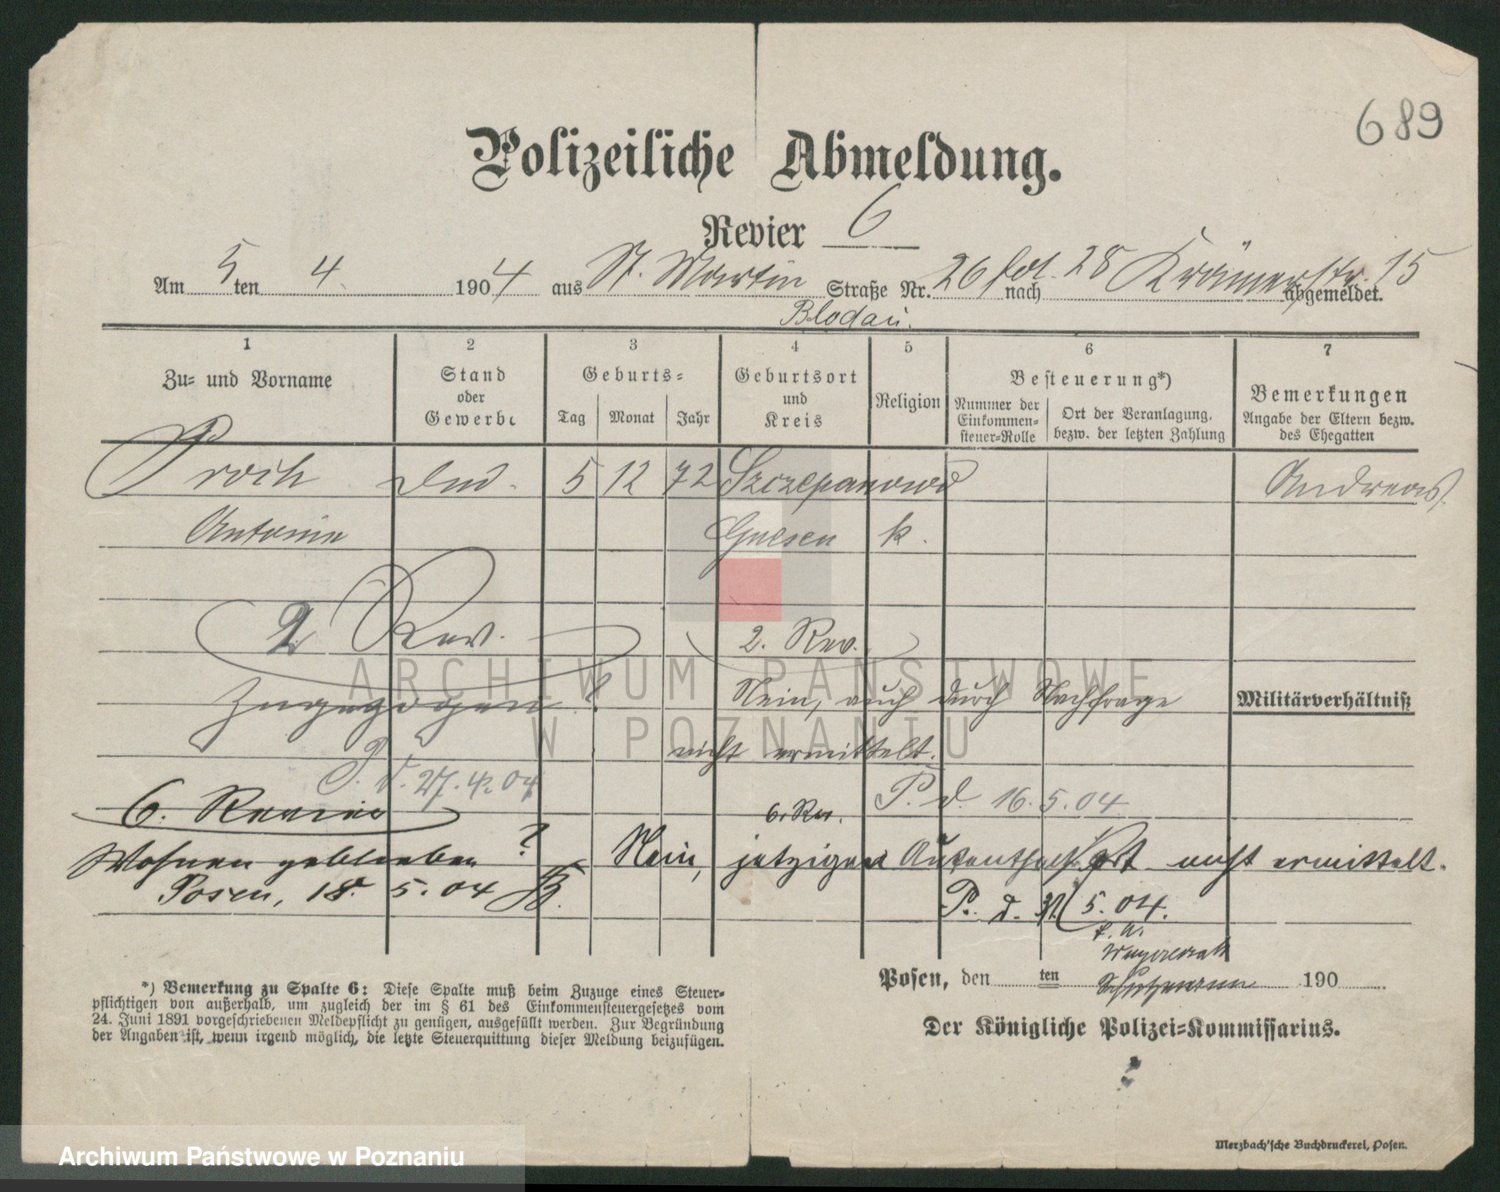 689
Polizeiliche Abmeldung.
Revier 6
Am 5 ten 4. 1904 aus St. Martin Straße Nr. 26 nach 28 Krämerstr. 15 abgemeldet.
Blodau.
1 2 3 4 5 6 7
Zu- und Vorname
Stand oder Gewerbe
Geburts-
Tag Monat Jahr
Geburtsort und Kreis
Religion
Besteuerung*)
Nummer der Einkommen-steuer-Rolle
Ort der Veranlagung, bezw. der letzten Zahlung
Bemerkungen
Angabe der Eltern bezw. des Ehegatten
Proch 5 12 72 Szczepanowo Andreas
Antonie Gnesen k.
2 Rev. 2. Rev.
Zugezogen? Nein, auch durch Nachfrage
Militärverhältniß
nicht ermittelt.
P. d. 27.4.04
6. Revier 6. Rev. P. d. 16.5.04
Wohnen geblieben? Nein, jetziger Aufenthaltsort nicht ermittelt.
Posen, 18. 5. 04 P. d. 5. 04.
Schutzmann
Posen, den ten 190
Der Königliche Polizei-Kommissarius.
*) Bemerkung zu Spalte 6: Diese Spalte muß beim Zuzuge eines Steuer-
pflichtigen von außerhalb, um zugleich der im § 61 des Einkommensteuergesetzes vom
24. Juni 1891 vorgeschriebenen Meldepflicht zu genügen, ausgefüllt werden. Zur Begründung
der Angaben ist, wenn irgend möglich, die letzte Steuerquittung dieser Meldung beizufügen.
Merzbach'sche Buchdruckerei, Posen.
ARCHIWUM PAŃSTWOWE
W POZNANIU
Archiwum Państwowe w Poznaniu